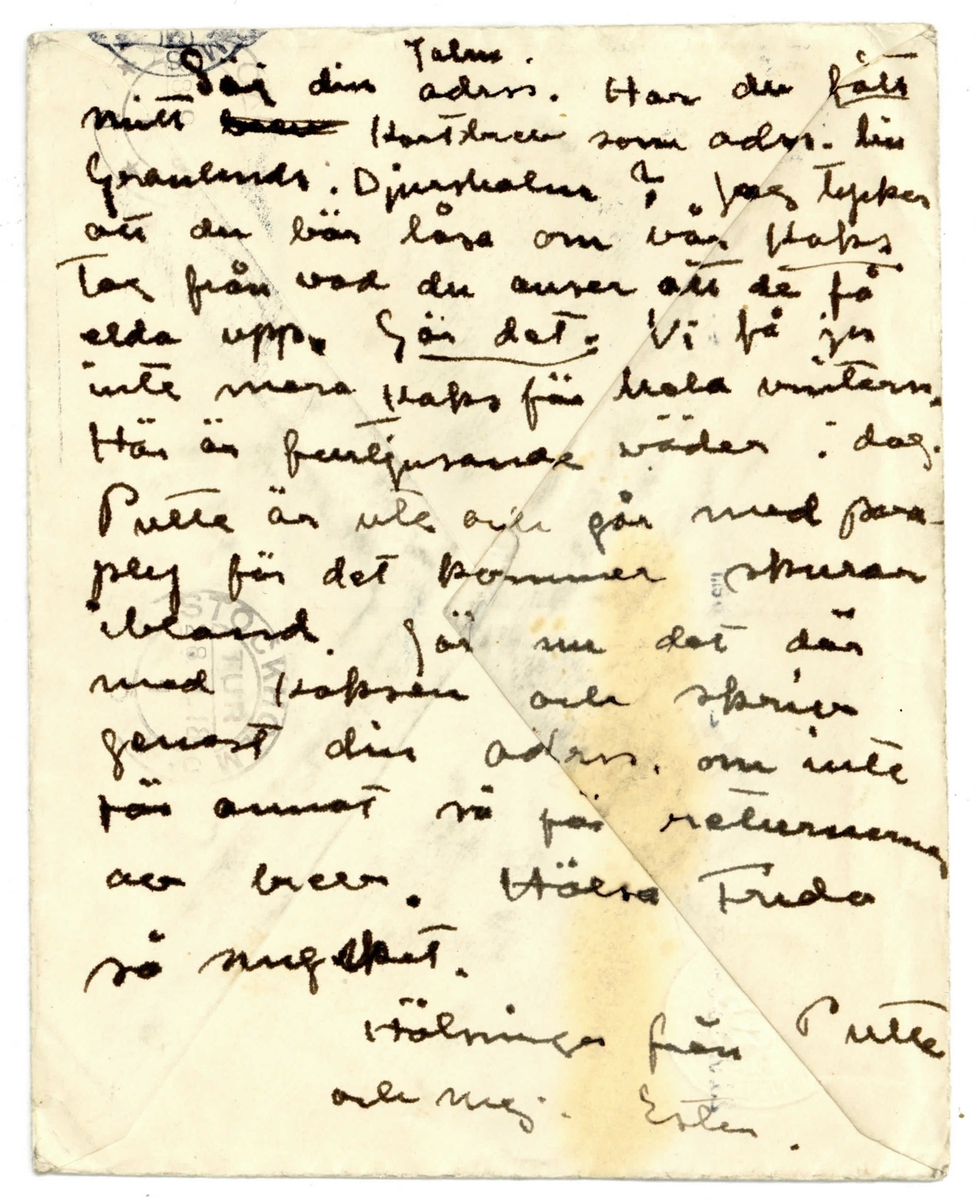 Säg din adrss. Har du fått
mitt kortbrev som adrs. till
Granlunds. Djursholm? Jag tycker
att du bör låsa om vår koks
tag från vad du anser att de få
elda upp. Gör det. Vi få ju
inte mera koks för hela vintern.
Här är förtjusande väder i dag.
Putte är ute och går med para-
ply för det kommer skurar
ibland. Gör nu det där
med koksen och skriv
genast din adrss. om inte
för annat så för returnering
av brev. Hälsa Frida
så mycket.
Hälsningar från Putte
och mej. Ester.
STOCKHOLM
TUR